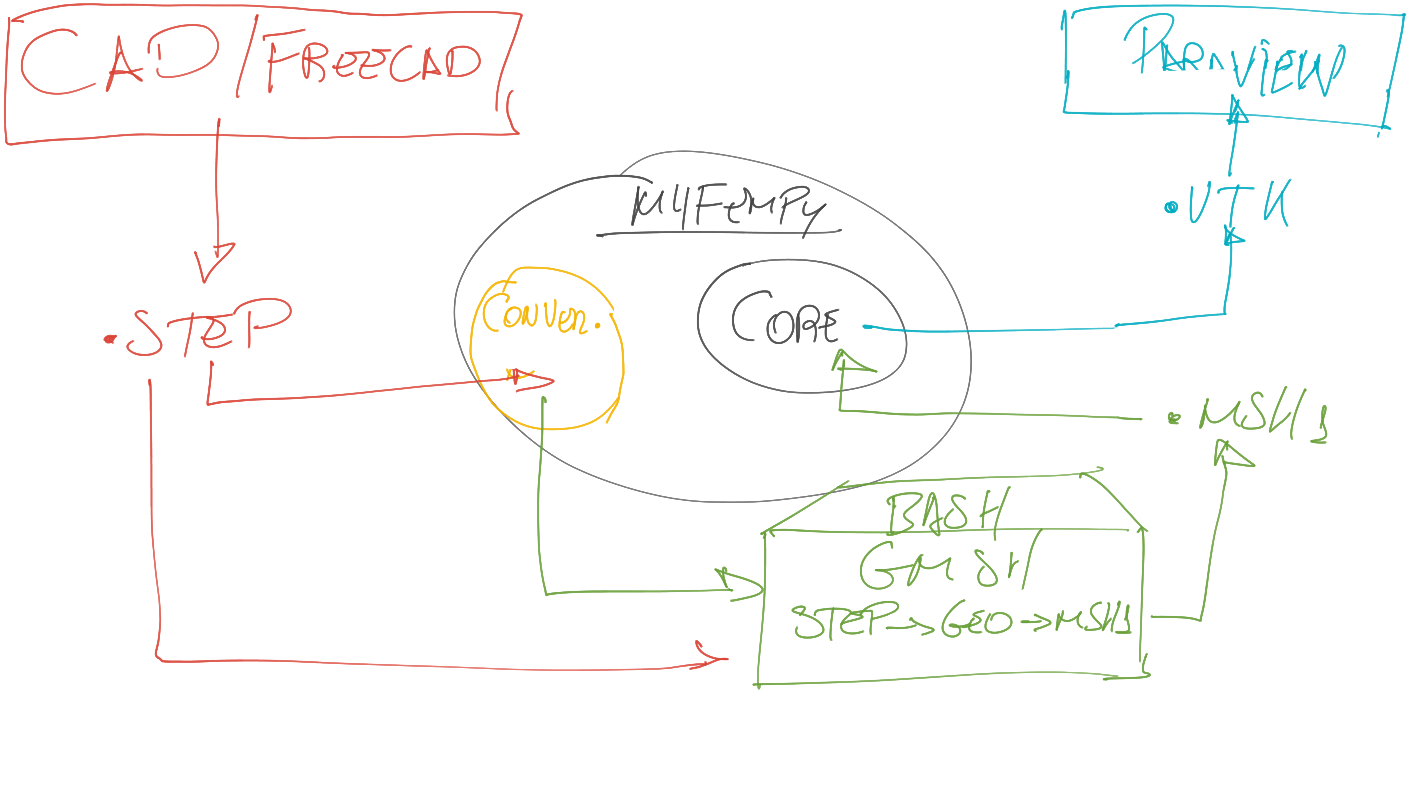 CAD/FREECAD
PARAVIEW
.VTK
MYFEMPY
CONVER.
CORE
.STEP
.MSH1
BASH
GMSH
STEP→GEO→MSH1